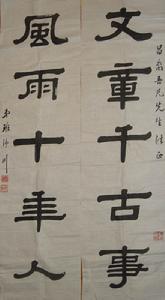 吾兄先生法正
文章千古事
風雨十年人